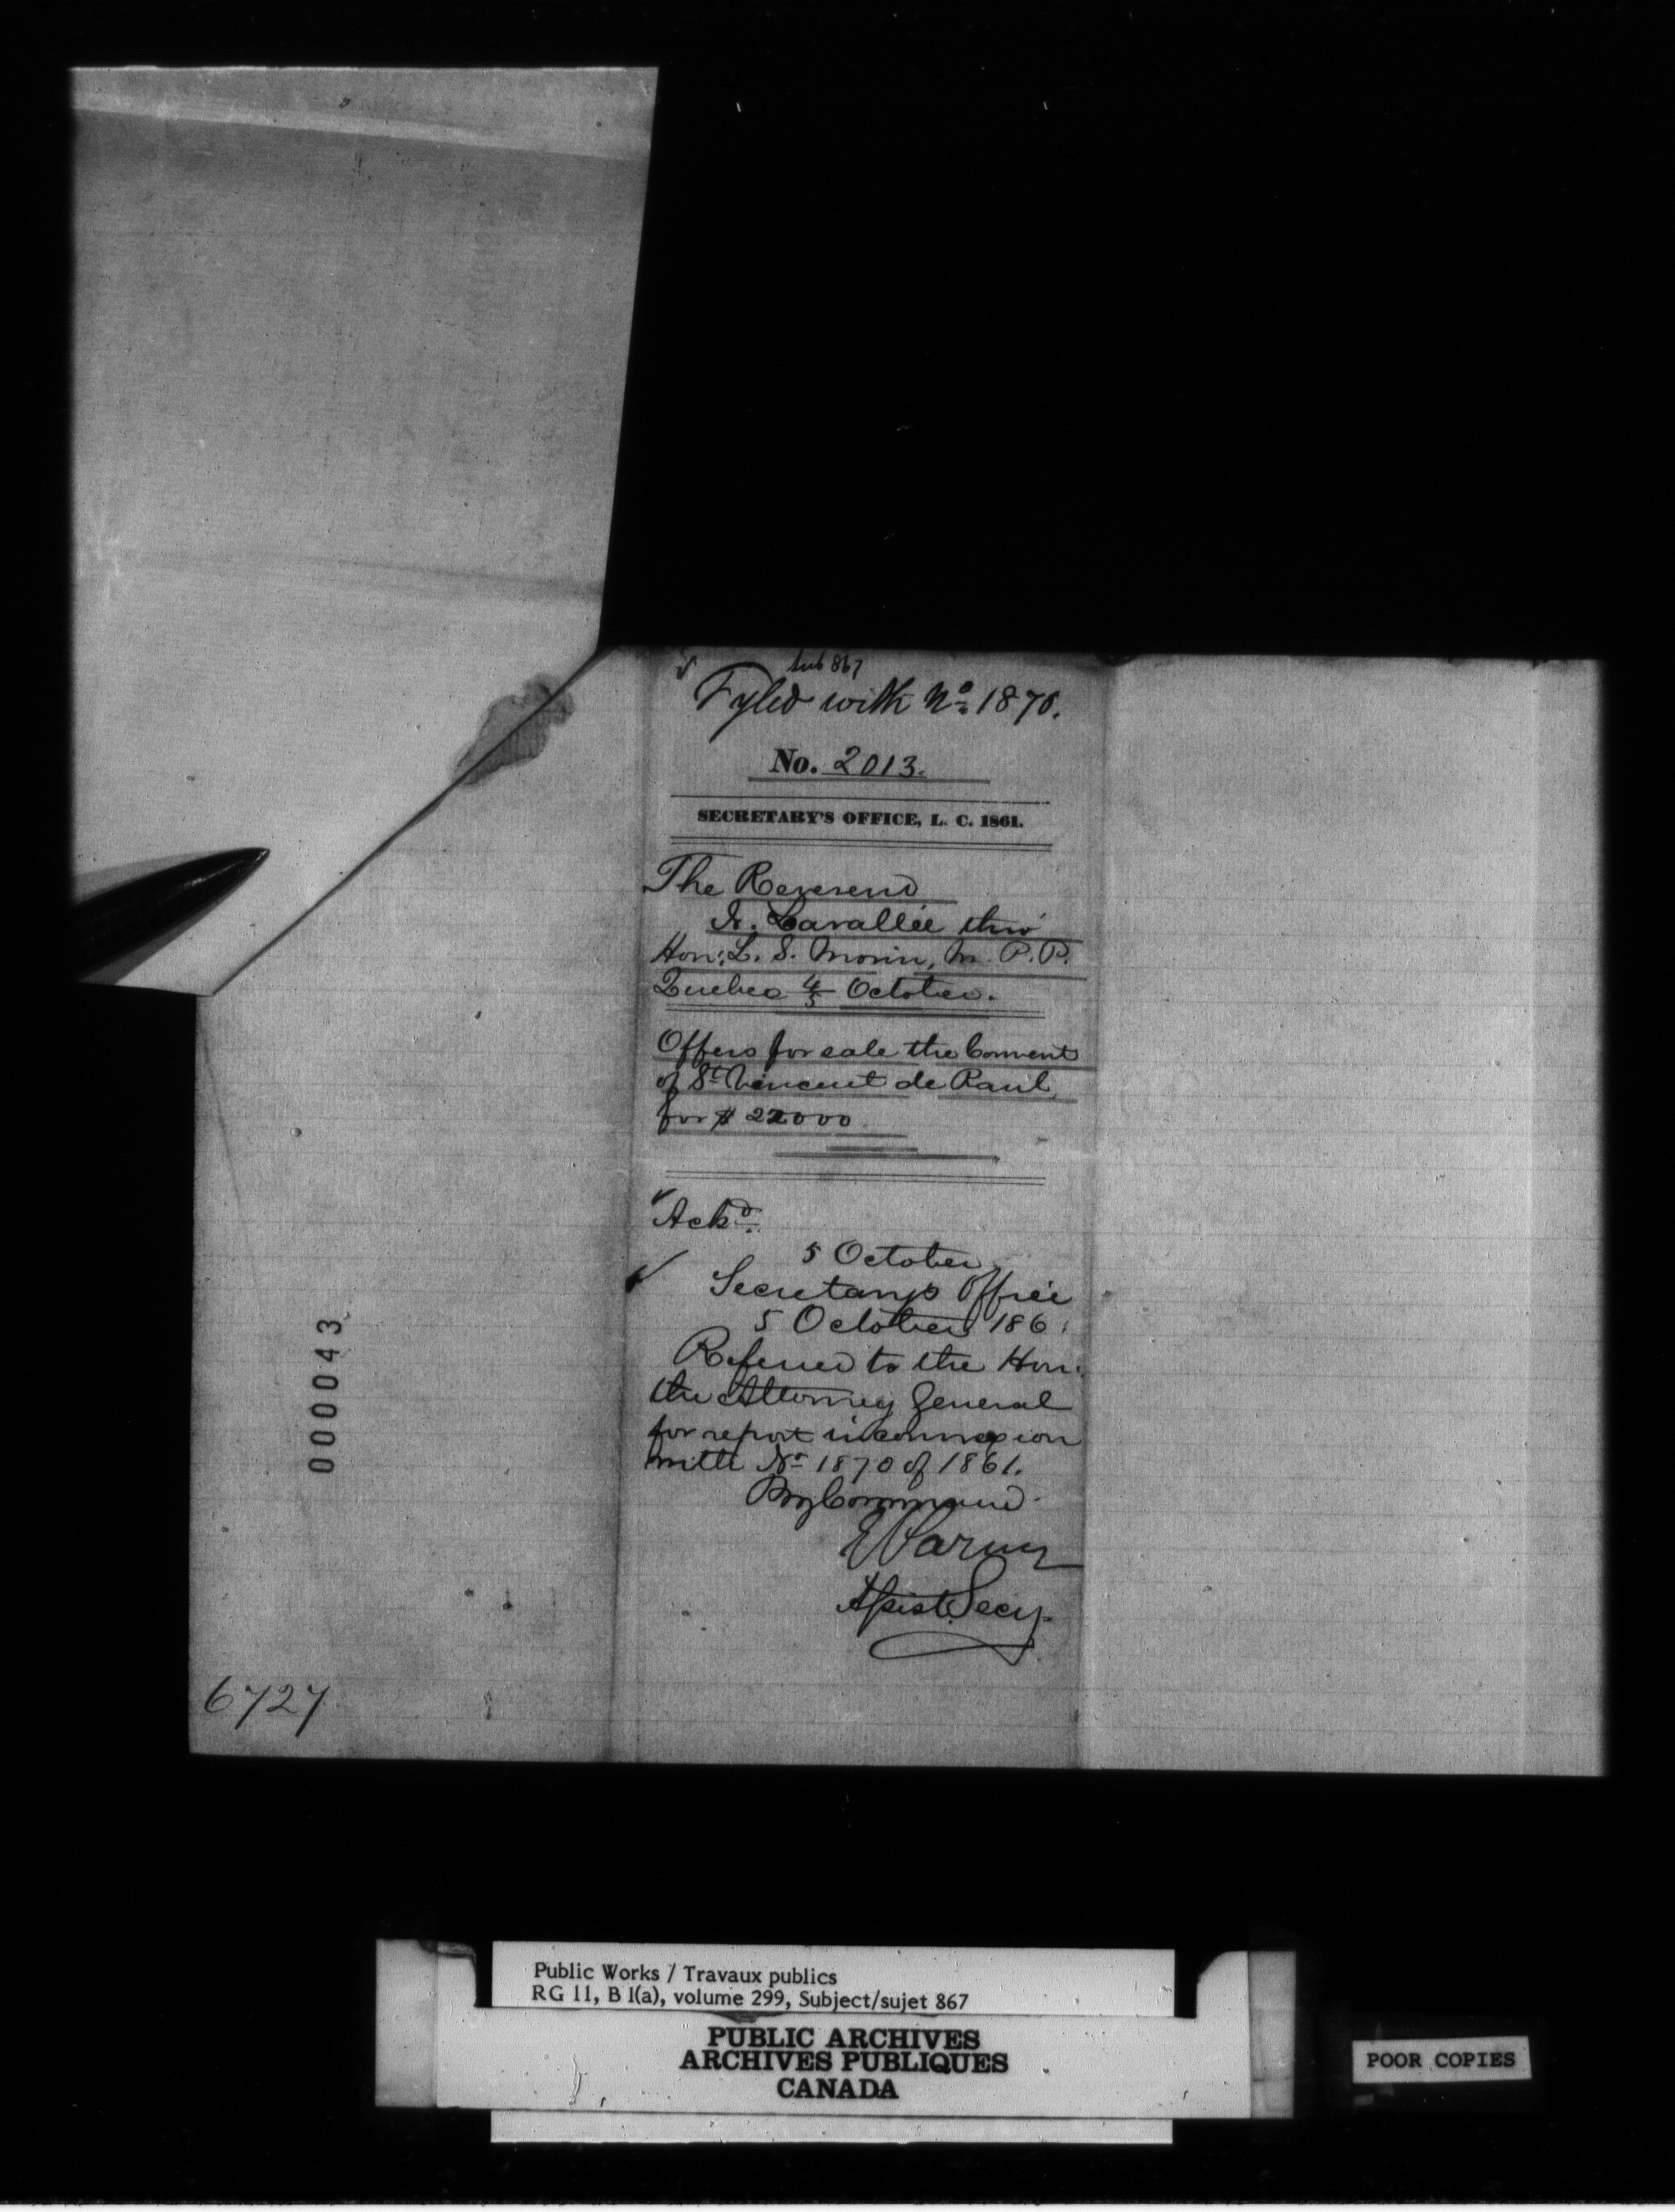 Sub 867
Fyled with No 1870.
No. 2013.
SECRETARY'S OFFICE, L. C. 1861.
The Reverend
Lavallée thro'
Hon: L. S. Morin, M. P. P.
Quebec 4/5 October.
Offers for sale the Convent
of St Vincent de Paul
for $ 22000
Ackd.
5 October
Secretary's Office
5 October 186
Referred to the Hon:
the Attorney General
for report in connexion
with No 1870 of 1861.
By Command.
E Parent
Assist. Secy.
000043
6727
Public Works / Travaux publics
RG 11, B 1(a), volume 299, Subject/sujet 867
PUBLIC ARCHIVES
ARCHIVES PUBLIQUES
CANADA
POOR COPIES